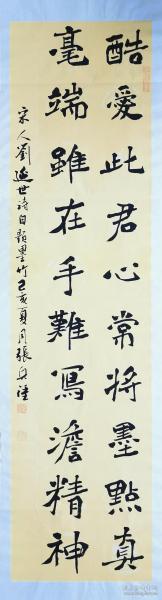 酷愛此君心常將墨點真
毫端雖在手難寫澹精神
宋人劉延世詩自題墨竹己亥夏月張興